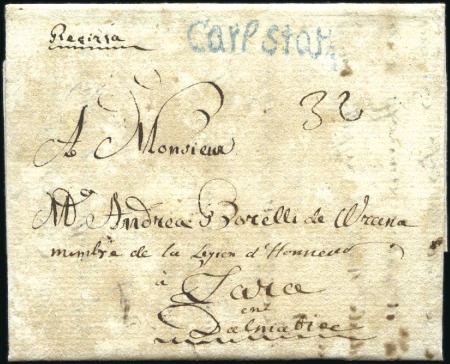 Recissa
Carlstat
32
A Monsieur
Mr. Andrea Borelli de Wrana
membre de la Legion d'Honneur
à
Zara
en
Dalmatie